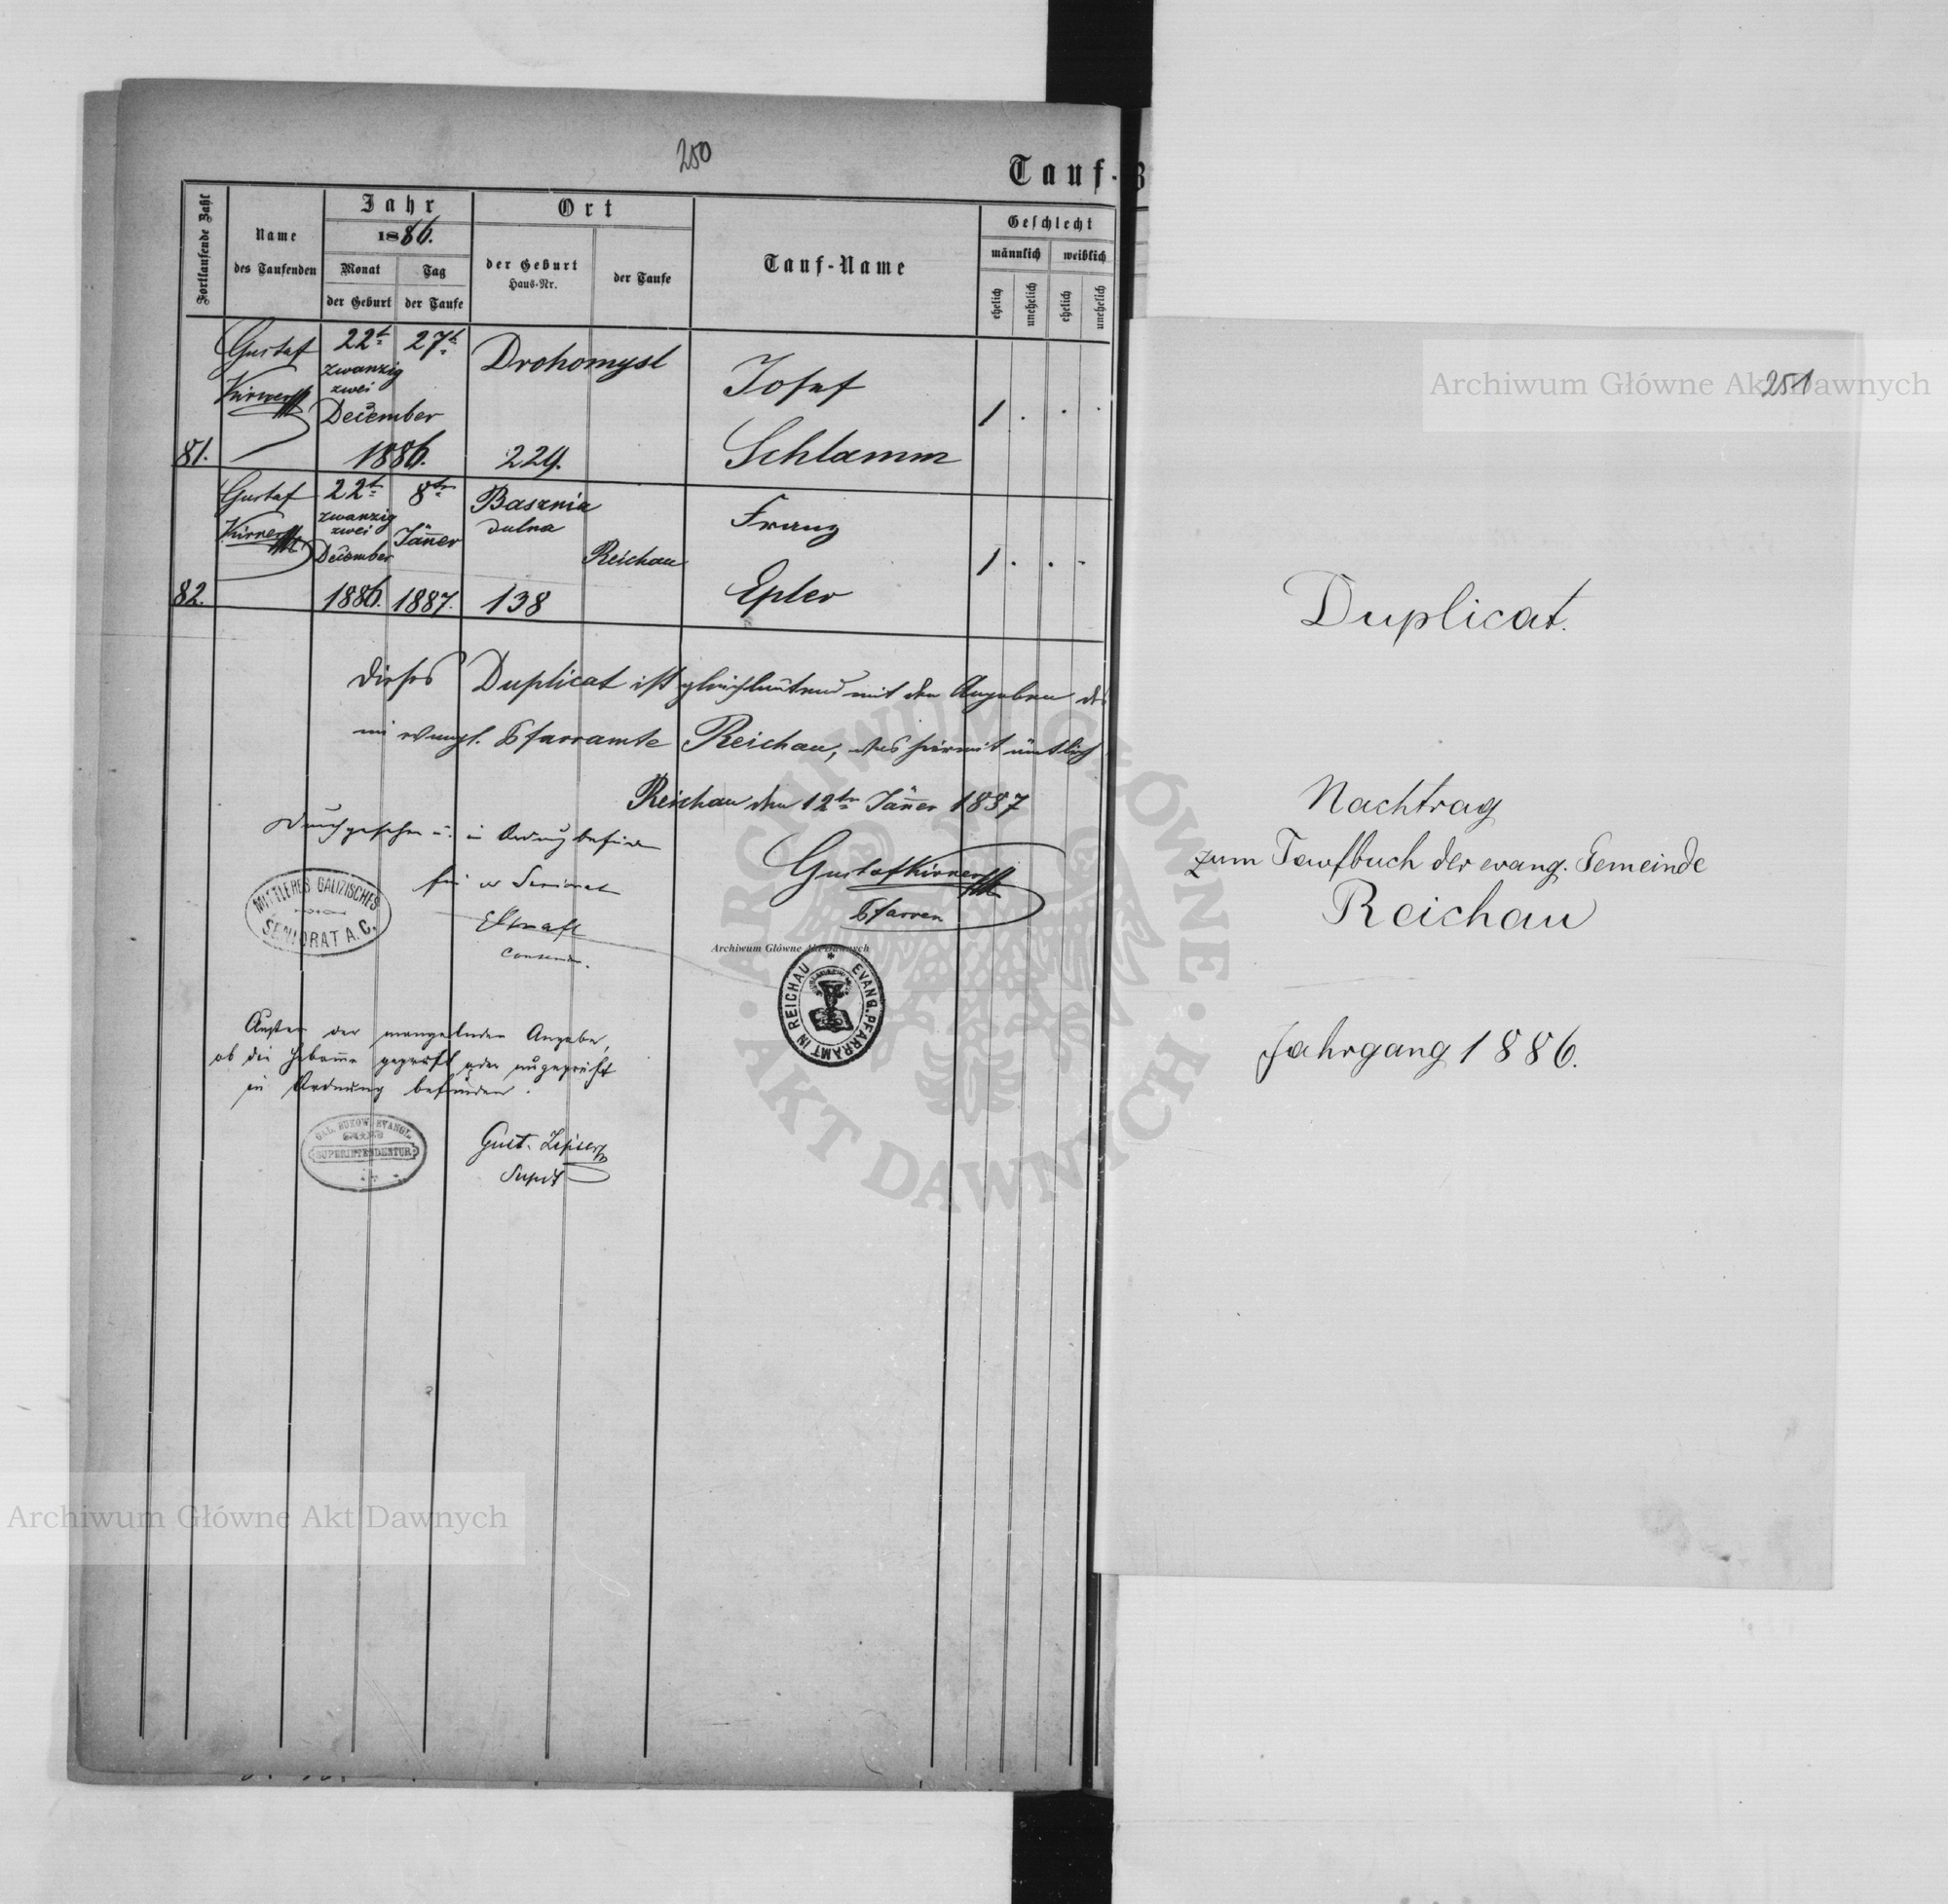 250
Tauf-B
Fortlaufende Zahl
Name
des Taufenden
Jahr
1886.
Monat
der Geburt
Tag
der Taufe
Ort
der Geburt
Haus-Nr.
der Taufe
Tauf-Name
Geschlecht
männlich
weiblich
ehelich
unehelich
ehelich
unehelich
81.
Gustaf
22t 27t
zwanzig
zwei
December
1886.
Drohomysl
229.
Josef
Schlamm
1 . . .
82.
Gustaf
22t 8ter
zwanzig
zwei
December
Jänner
1886. 1887.
Basznia
dulna
138
Reichau
Franz
Epler
1 . . .
Dieses Duplicat ist gleichlautend mit den Angaben
im evangl. Pfarramte Reichau, was hiermit
Reichau den 12ter Jänner 1887
Durchgesehen u. in Ordnung befunden
MITTLERES GALIZISCHES
SENIORAT A.C.
Seniorat
Gustaf
Pfarrer
Archiwum Główne Akt Dawnych
EVANG. PFARRAMT IN REICHAU
Ausser der mangelnden Angabe,
ob die Hebamme geprüft oder ungeprüft
in Ordnung befunden.
GAL. BUKOW. EVANGL.
SUPERINTENDENTUR
Gust.
Supdt
ARCHIWUM GŁÓWNE
AKT DAWNYCH
Archiwum Główne Akt Dawnych
Archiwum Główne Akt Dawnych
251
Duplicat.
Nachtrag
zum Taufbuch der evang. Gemeinde
Reichau
Jahrgang 1886.